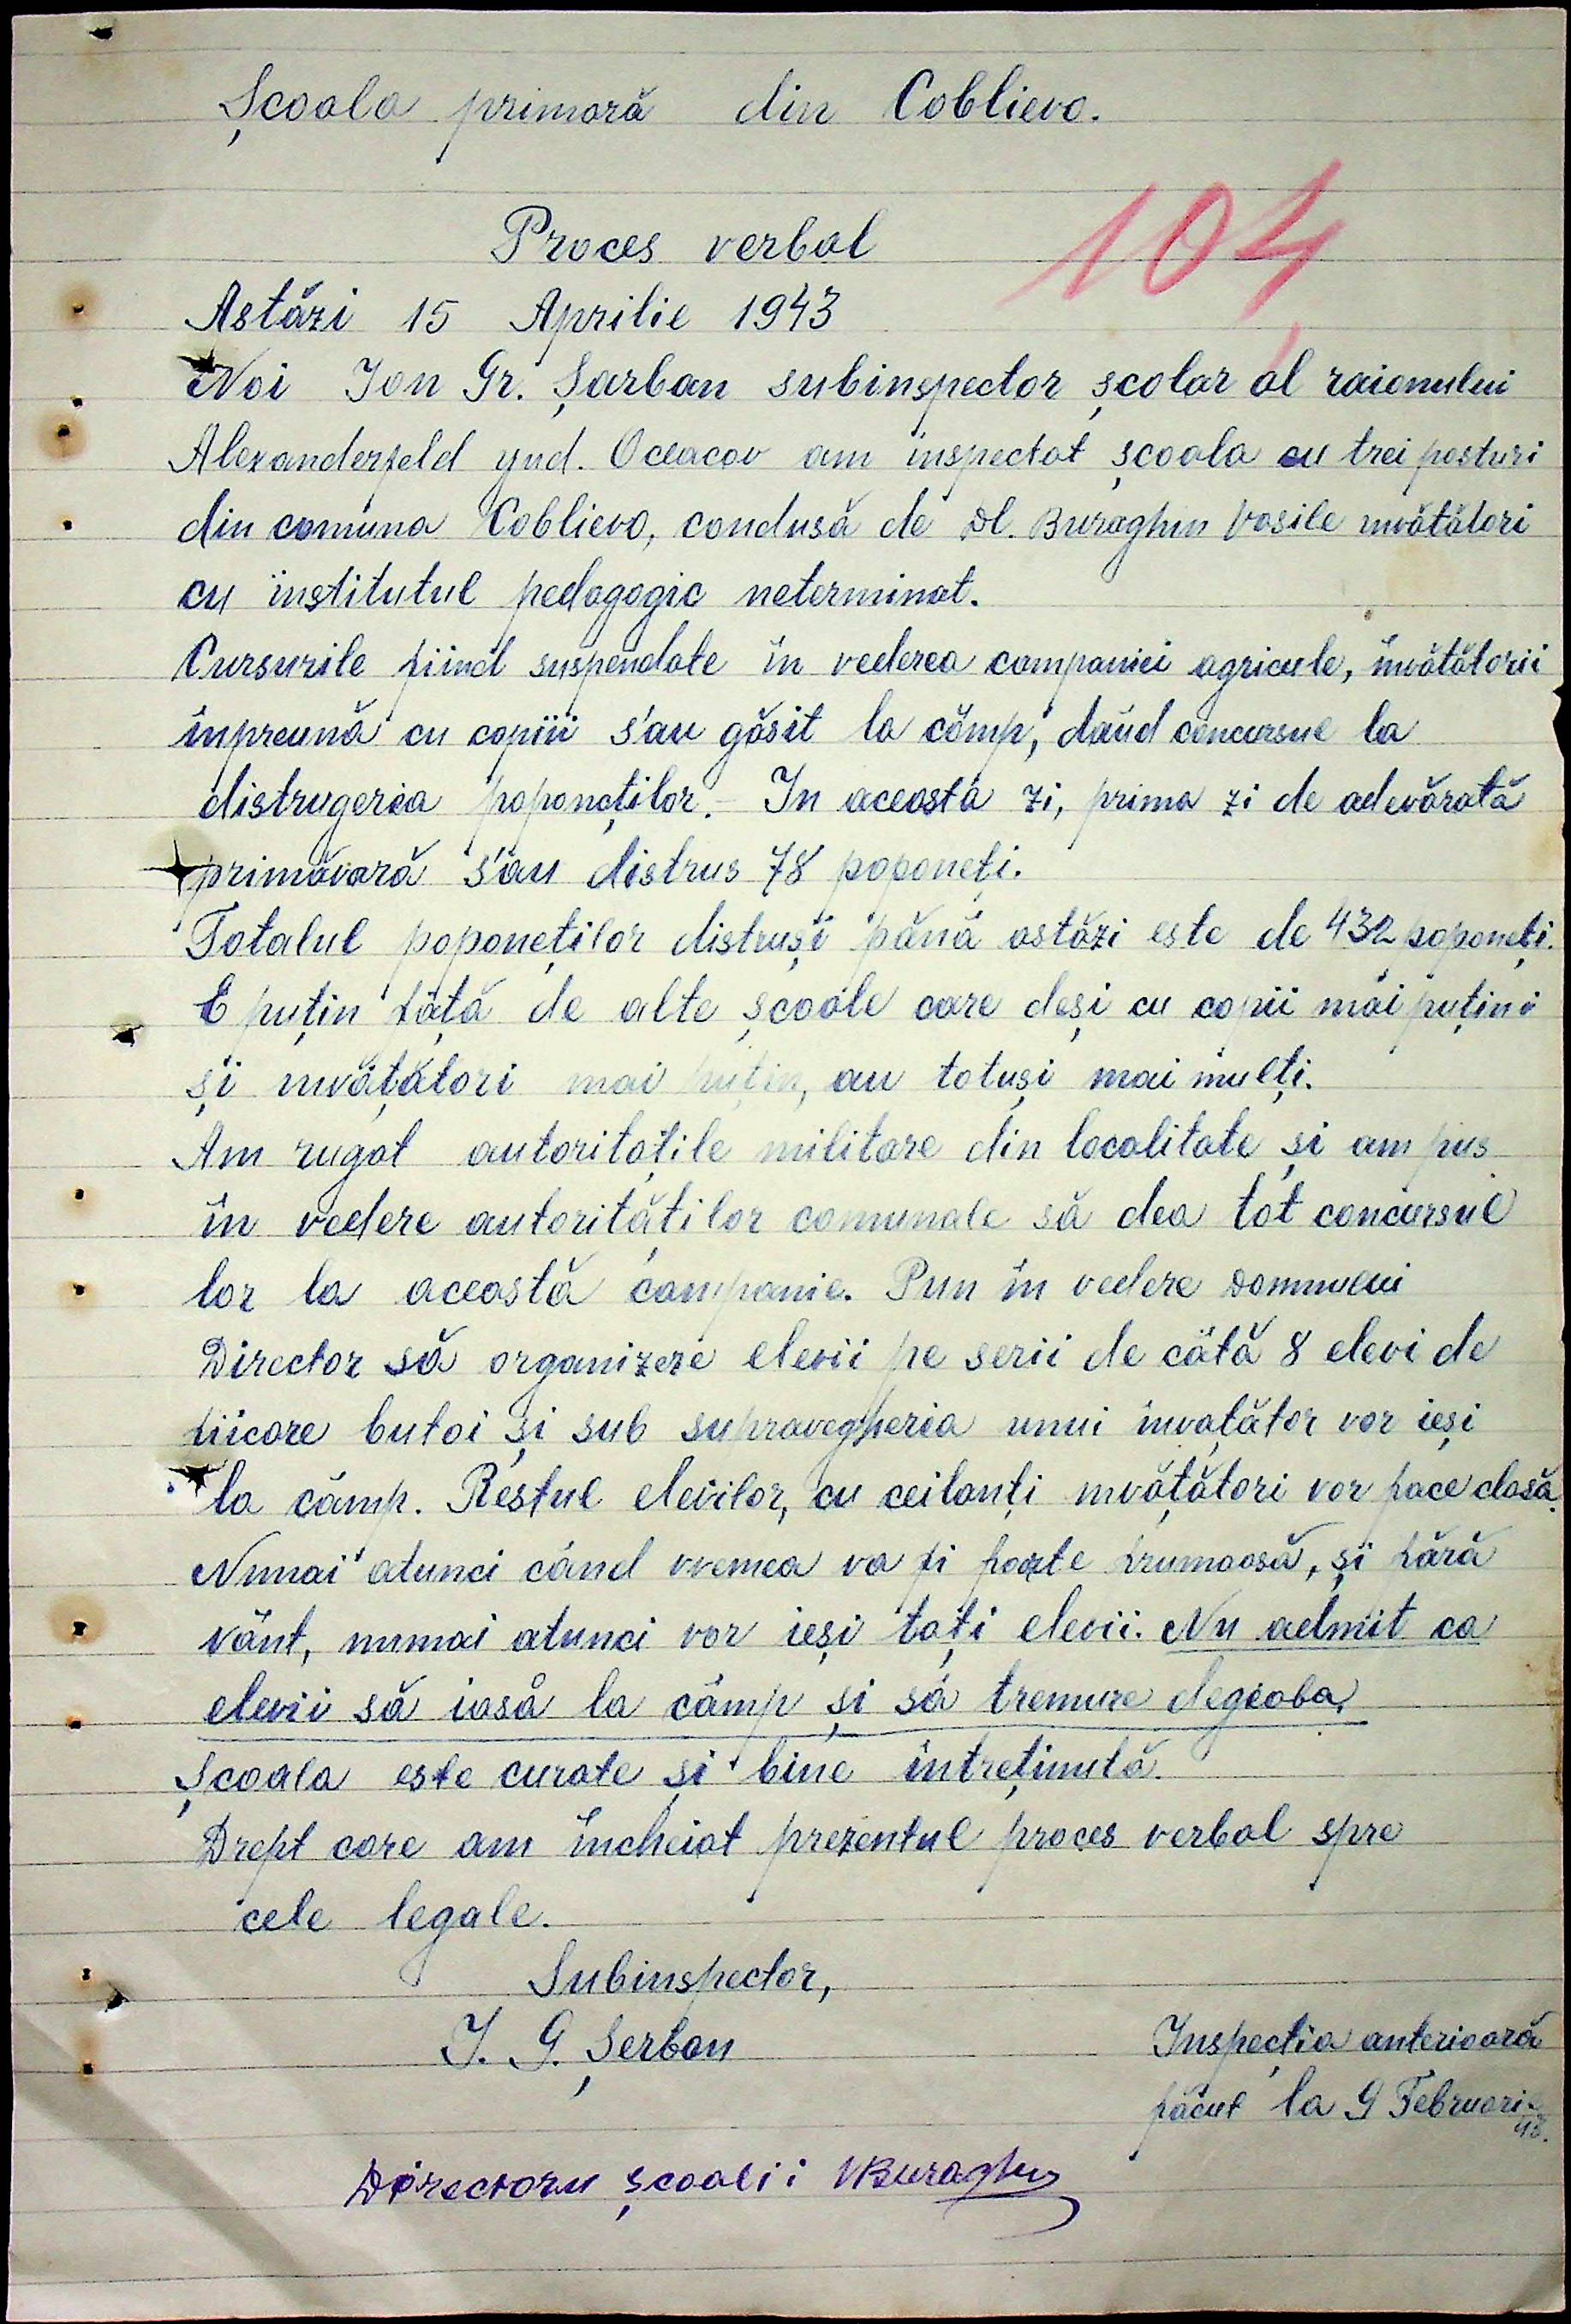 Școala primară din Coblievo.
104
Proces verbal
Astăzi 15 Aprilie 1943
Noi Ion Gr. Șarban subinspector școlar al raionului
Alexanderfeld jud. Oceacov am inspectat școala cu trei posturi
din comuna Coblievo, condusă de Dl. Buraghin Vasile învătători
cu institutul pedagogic neterminat.
Cursurile fiind suspendate în vederea companiei agricule, învătătorii
înpreună cu copiii s'au găsit la cămp, dăud concursul la
distrugeria poponeților. – In aceasta zi, prima zi de adevărată
primăvară s'au distrus 78 poponeți.
Totalul poponeților distruși până astăzi este de 432 poponeți.
E puțin față de alte școale care deși cu copii mai puțini
și învățători mai puțin, au totuși mai mulți.
Am rugat autoritațile militare din localitate și am pus
în vedere autorităților comunale să dea tot concursul
lor la această companie. Pun în vedere Domnului
Director să organizeze elevii pe serii de câtă 8 elevi de
fiicare butoi și sub supravegheria unui învațător vor ieși
la câmp. Restul elevilor, cu ceilanți învățători vor face clasă.
Numai atunci când vremea va fi foarte frumoasă, și fără
vânt, numai atunci vor ieși toți elevii. Nu admit ca
elevii să iasă la câmp și să tremure degeaba.
Școala este curate și bine întreținută.
Drept care am încheiat prezentul proces verbal spre
cele legale.
Subinspector,
I. G. Șerban
Inspecția anterioară
făcut la 9 Februarie
43.
Directoru școalii VBuraghin